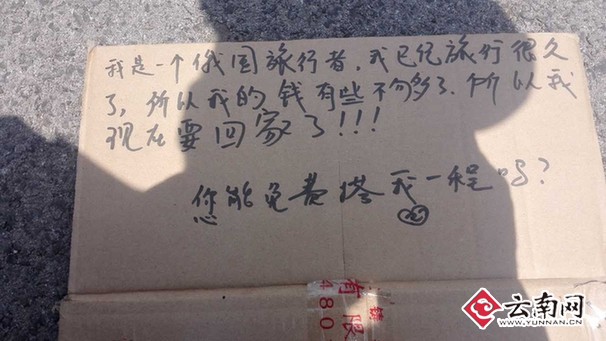 我是一个俄国旅行者,我已经旅行很久
了,所以我的钱有些不够多了.所以我
现在要回家了!!!
您能免费搭我一程吗?
有限
480
云南网
WWW.YUNNAN.CN